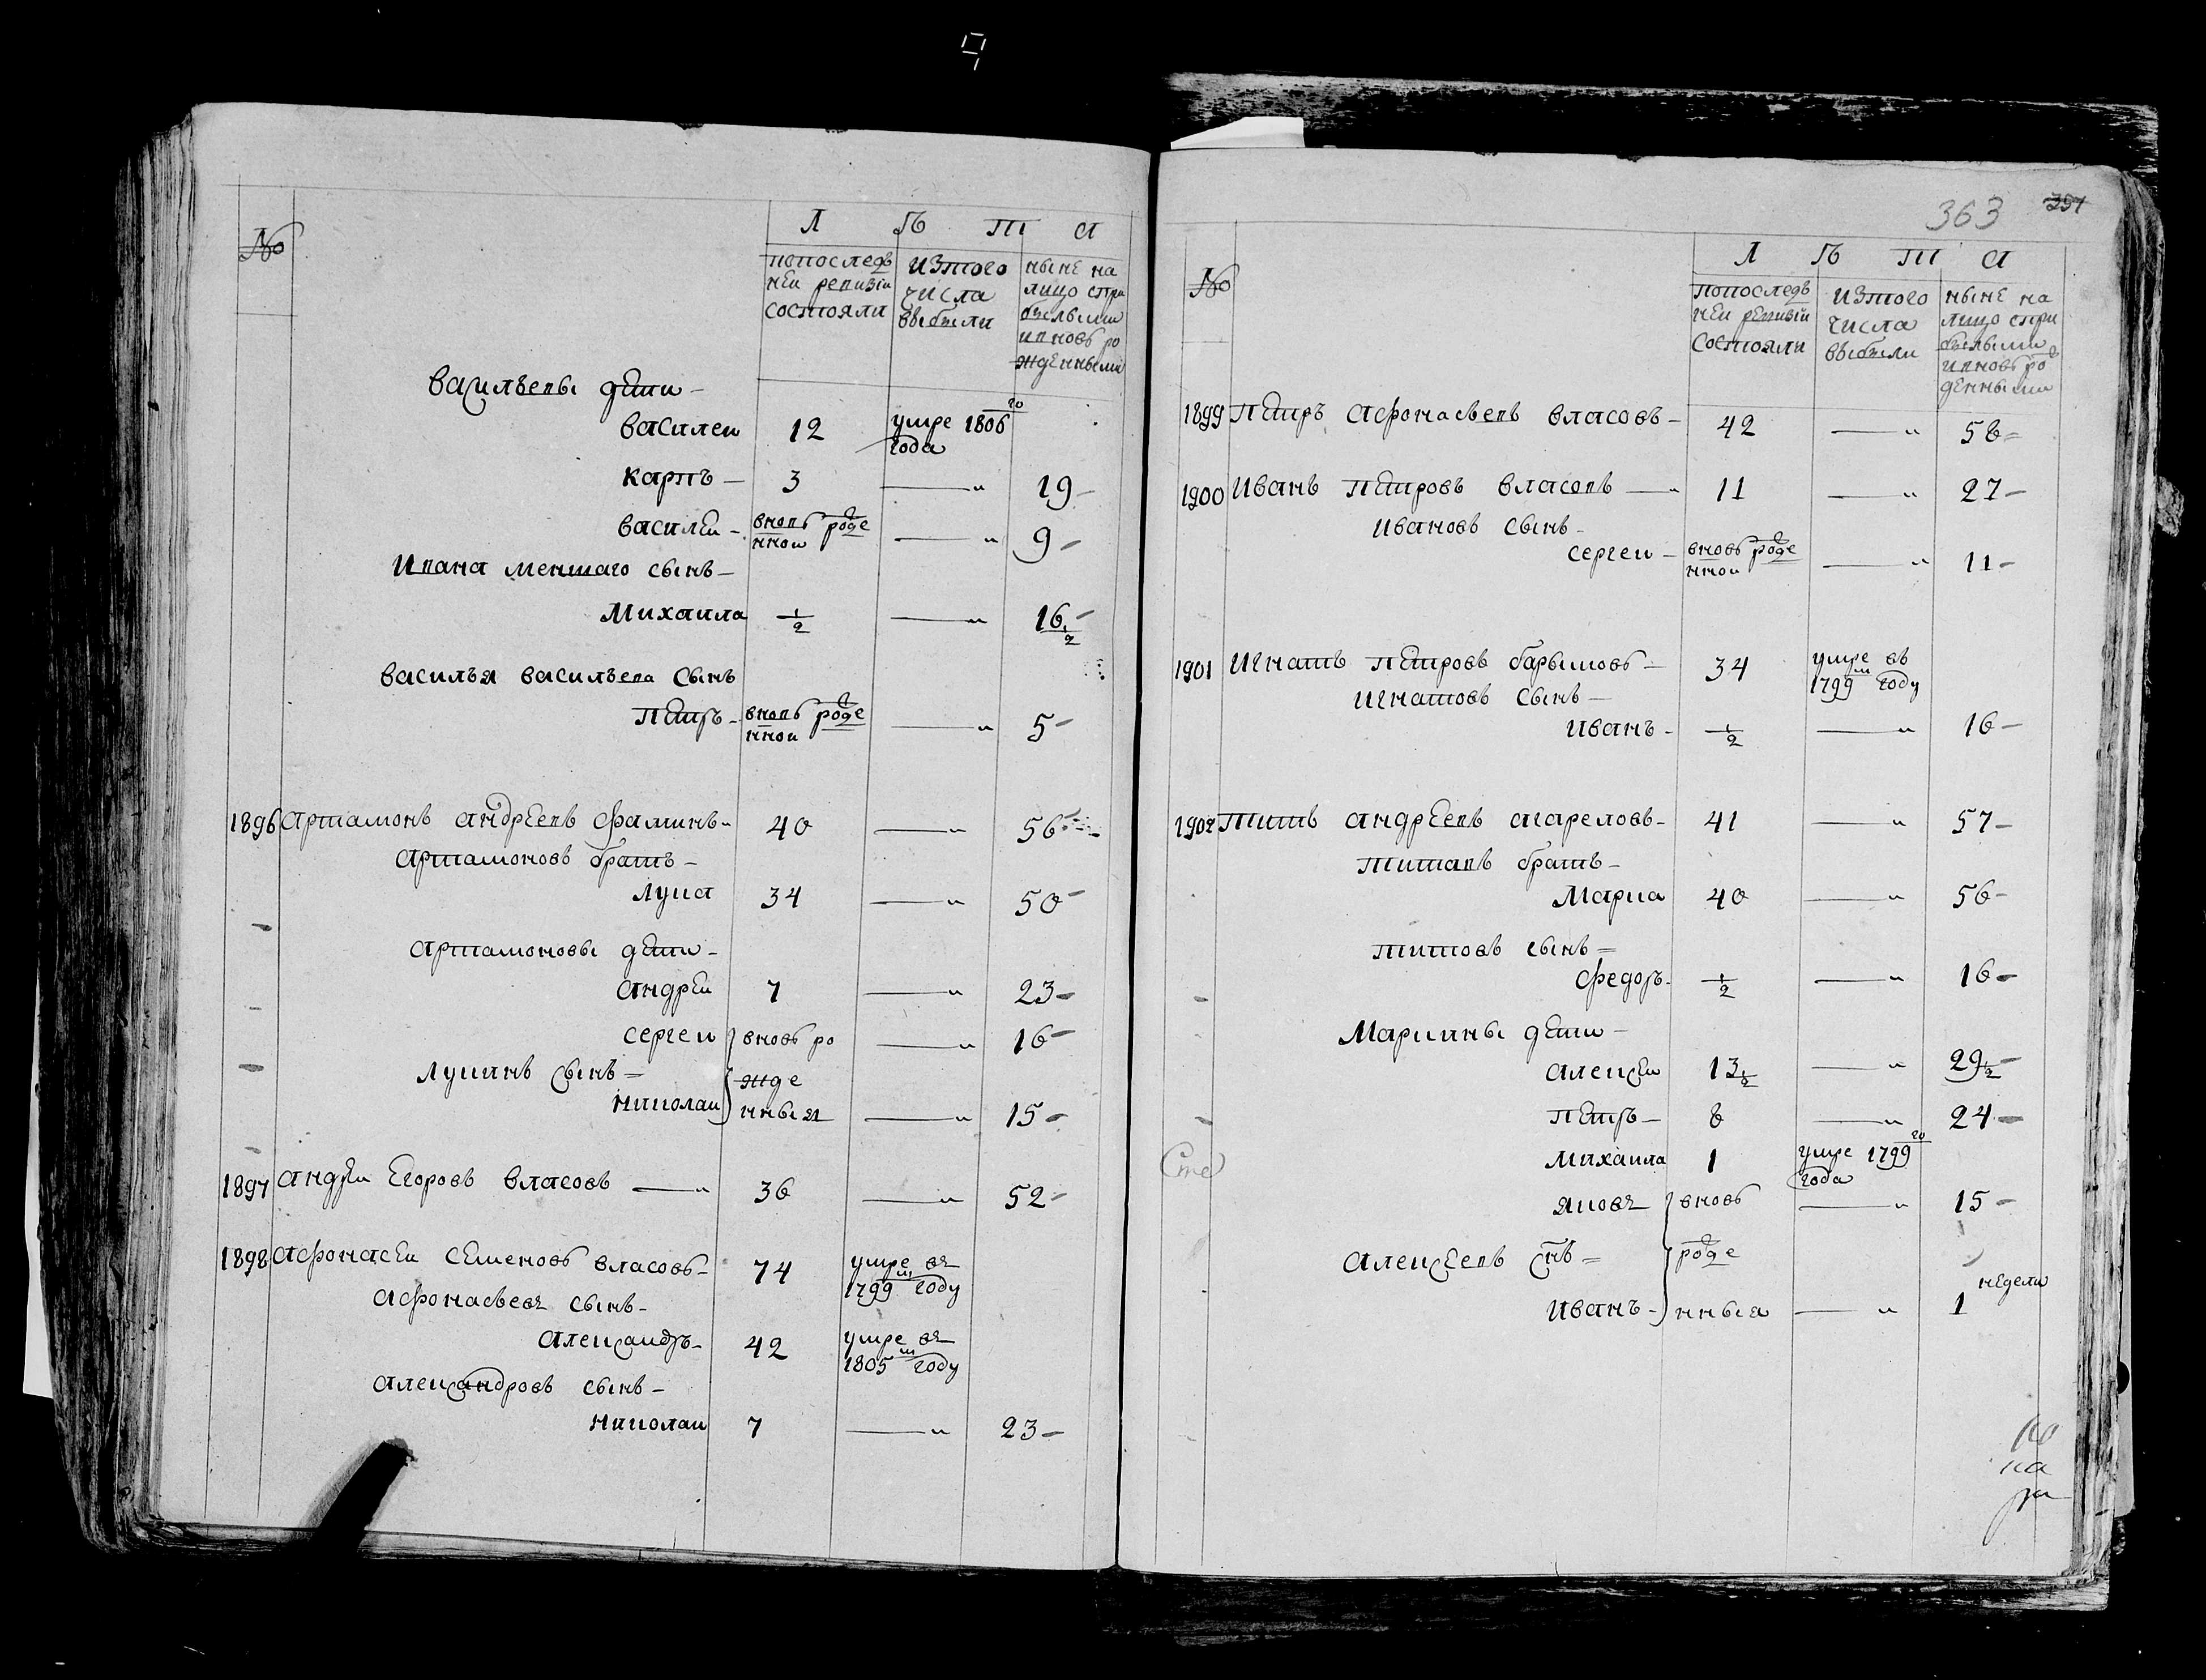 №
Л Ѣ Т А
попоследъ
ней ревизіи
состояли
изтого
числа
выбыли
ныне на
лицо спри
былыми
ивновь ро
жденными
васильевы дети
василеи 12 умре 1806 го
года
карпъ 3 19
василеи вновь рожде
ннои 9
Ивана меншаго сынъ
Михаила 1/2 16 1/2
василья васильева сынъ
Петръ вновь рожде
ннои 5
1896 Артамонъ андреевъ фаминъ 40 56
артамоновъ братъ
лука 34 50
артамоновы дети
андреи 7 23
сергеи вновь ро 16
лукинъ сынъ жде
николаи нныя 15
1897 андреи Егоровъ власовъ 36 52
1898 Афонасеи семеновъ власовъ 74 умре въ
1799 м году
афонасьевъ сынъ
александръ 42 умре въ
1805 м году
александровъ сынъ
николаи 7 23
363 351
№
Л Ѣ Т А
попоследъ
ней ревизіи
состояли
изтого
числа
выбыли
ныне на
лицо спри
былыми
ивновь рож
денными
1899 Петръ афонасьевъ власовъ 42 58
1900 Иванъ Петровъ власовъ 11 27
ивановъ сынъ
сергеи вновь рожде
ннои 11
1901 Игнатъ Петровъ барымовъ 34 умре въ
1799 м году
игнатовъ сынъ
иванъ 1/2 16
1902 Титъ андреевъ агареловъ 41 57
титавъ братъ
Марка 40 56
титовъ сынъ
федоръ 1/2 16
Маркины дети
алексеи 13 1/2 29 1/2
Петръ 8 24
михаила 1 умре 1799 го
года
яковъ вновь 15
алексеевъ снъ рожде
иванъ нныя 1 недели